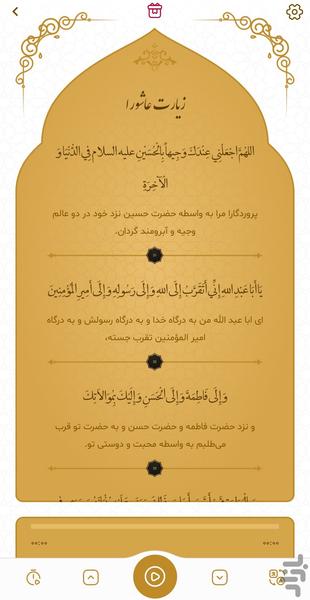 زیارت عاشورا
اللهُمَّ اجْعَلْنِي عِنْدَكَ وَجِيهاً بِالْحُسَيْنِ عليه السلام فِي الدُّنْيَا وَ
الْآخِرَةِ
پروردگارا مرا به واسطه حضرت حسین نزد خود در دو عالم
وجیه و آبرومند گردان.
يَا أَبَا عَبْدِ اللهِ إِنِّي أَتَقَرَّبُ إِلَى اللهِ وَ إِلَى رَسُولِهِ وَ إِلَى أَمِيرِ الْمُؤْمِنِينَ
ای ابا عبد الله من به درگاه خدا و به درگاه رسولش و به درگاه
امیر المؤمنین تقرب جسته،
وَ إِلَى فَاطِمَةَ وَ إِلَى الْحَسَنِ وَ إِلَيْكَ بِمُوَالَاتِكَ
و نزد حضرت فاطمه و حضرت حسن و به حضرت تو قرب
می‌طلبم به واسطه محبت و دوستی تو.
۰۰:۰۰ ۰۰:۰۰